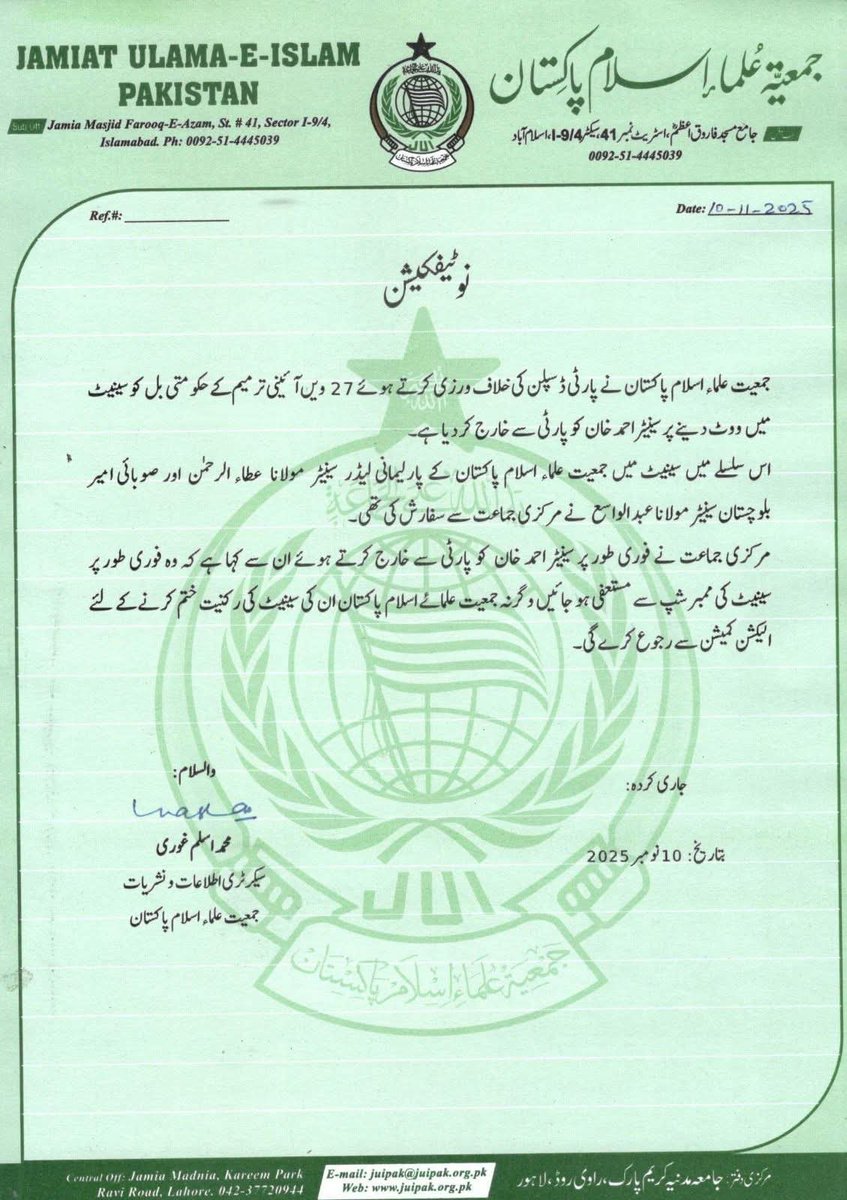 JAMIAT ULAMA-E-ISLAM
PAKISTAN
Sub Off: Jamia Masjid Farooq-E-Azam, St. # 41, Sector I-9/4,
Islamabad. Ph: 0092-51-4445039
جمعیۃ عُلماءِ اسلام پاکِستان
جامع مسجد فاروق اعظمؓ، اسٹریٹ نمبر 41، سیکٹر I-9/4، اسلام آباد
0092-51-4445039
Ref.#:
Date: 10-11-2025
نوٹیفکیشن
جمعیت علماء اسلام پاکستان نے پارٹی ڈسپلن کی خلاف ورزی کرتے ہوئے 27 ویں آئینی ترمیم کے حکومتی بل کو سینیٹ
میں ووٹ دینے پر سینیٹر احمد خان کو پارٹی سے خارج کر دیا ہے۔
اس سلسلے میں سینیٹ میں جمعیت علماء اسلام پاکستان کے پارلیمانی لیڈر سینیٹر مولانا عطاء الرحمٰن اور صوبائی امیر
بلوچستان سینیٹر مولانا عبد الواسع نے مرکزی جماعت سے سفارش کی تھی۔
مرکزی جماعت نے فوری طور پر سینیٹر احمد خان کو پارٹی سے خارج کرتے ہوئے ان سے کہا ہے کہ وہ فوری طور پر
سینیٹ کی ممبر شپ سے مستعفی ہو جائیں وگرنہ جمعیت علمائے اسلام پاکستان ان کی سینیٹ کی رکنیت ختم کرنے کے لئے
الیکشن کمیشن سے رجوع کرے گی۔
جاری کردہ:
بتاریخ: 10 نومبر 2025
والسلام:
محمد اسلم غوری
سیکرٹری اطلاعات و نشریات
جمعیت علماء اسلام پاکستان
جمعیۃ علماءِ اسلام پاکستان
Central Off: Jamia Madnia, Kareem Park
Ravi Road, Lahore. 042-37720944
E-mail: juipak@juipak.org.pk
Web: www.juipak.org.pk
مرکزی دفتر: جامعہ مدنیہ کریم پارک، راوی روڈ، لاہور